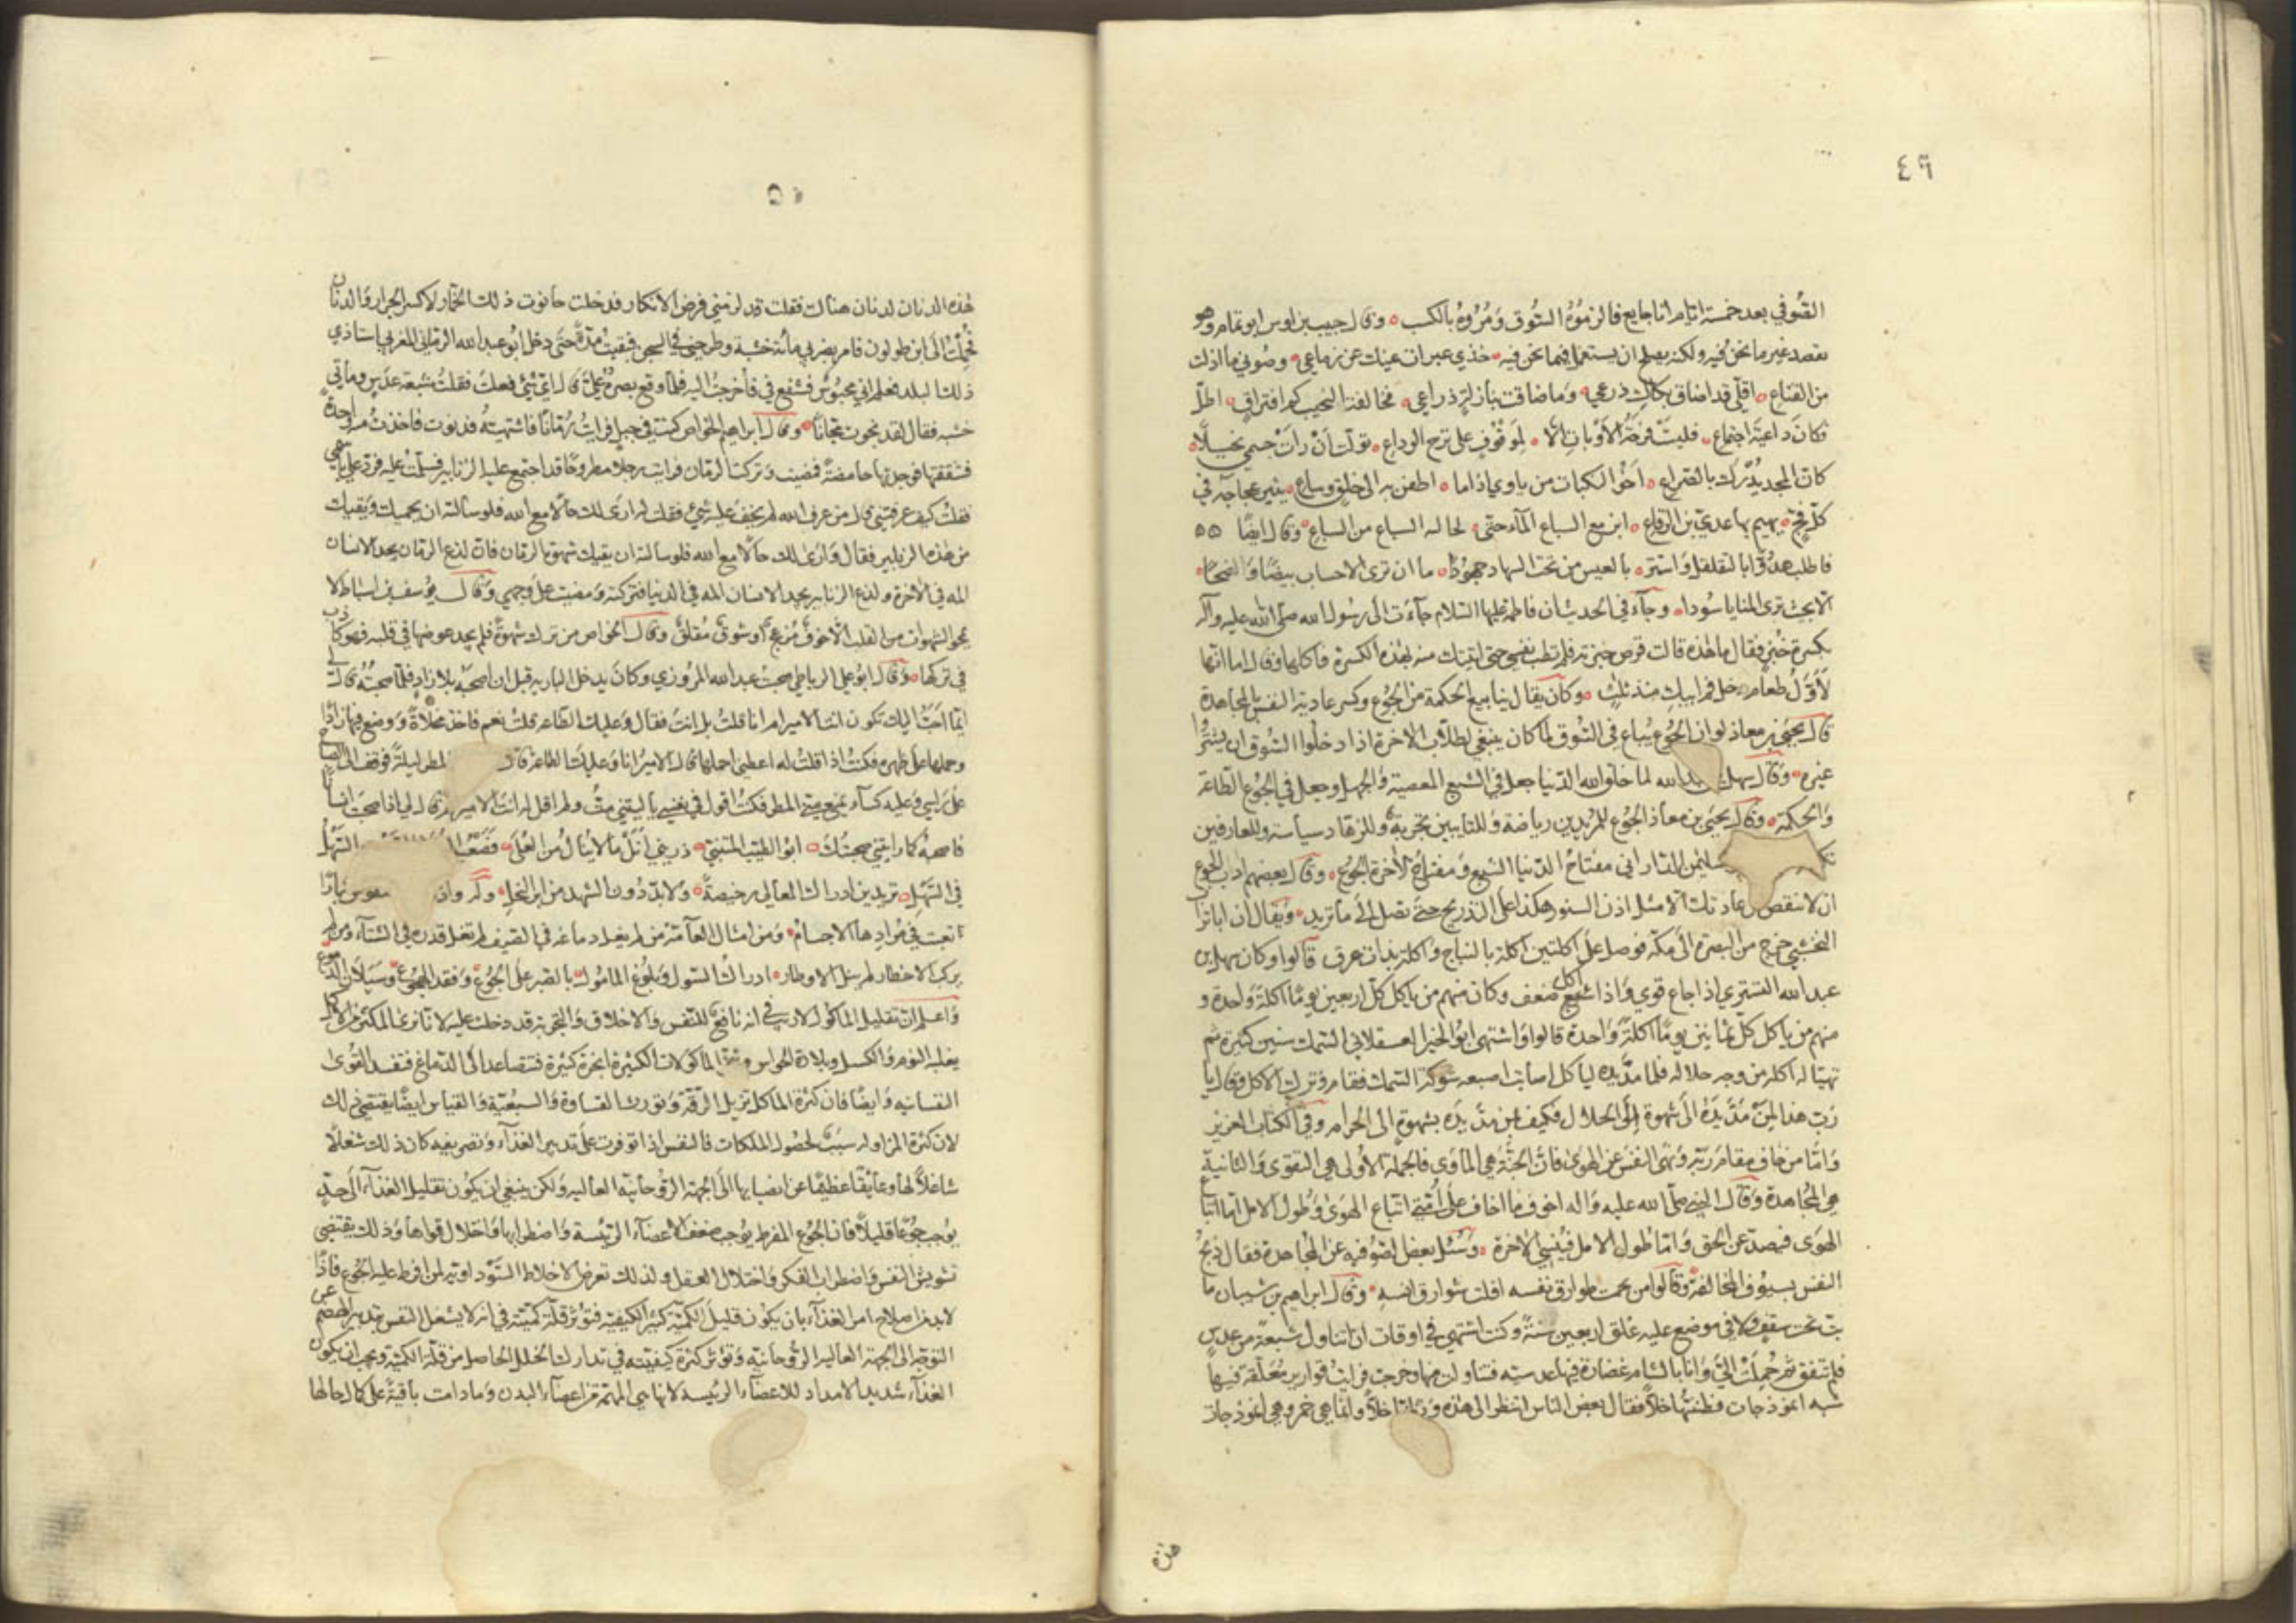 ٤٩
الصُوفي بعد خمسة ايام انا جايع فالزمُوُهُ السُوق وَمُرُوهُ بالكسب ٥ وقال حبيب بن اوس ابو تمام وهو
يقصد غير ما نحنُ فيه ولكنه يصلح ان يستعمل فيما نحن فيه خذي عبرات عينك عن زماعي وصُوني ما اذلت
من القناع ٥ اقلّي قد اضاق بكاكِ ذرعي وَما ضاقت بنازلةٍ ذراعي ٥ ءَآلفة النحيب كم افتراقٍ اظلّ
فكانَ داعيَة اجتماع فليسَت فرحَةُ الأوباتِ اِلّا لموقُوفٍ على ترح الوداع ٥ تولّت أنْ رَأتْ جسمي نحيلًا
كانّ المجد يُدْرك بالصراعِ ٥ اَخُو النكبات من ياوي اذا ما ٥ اطفن به الى خلقٍ وساعٍ يثير عجاجة في
كلّ فجٍّ يهيم بها عديّ بن الرقاع ٥ ابن مع السباع المآء حتّى لخالته السباع من السباع ٥ وقال ايضًا ٥٥
فاطلب هدُوًّا بالتقلقل وَاستثر ٥ بالعيس من تحت السهاد هجُودًا ٥ ما ان ترى الاحساب بيضًا وَضّحًا
الّا بحيث ترى المنايا سُودا ٥ وجاءَ في الحديث ان فاطمة عليها السّلام جآءت الى رسُول الله صلّى الله عليه وآله
بكسرة خُبز فقال ما هٰذه قالت قرص خبزته فلم تطب نفسي حتى اتيتك منه بهٰذه الكسرة فاكلها وقال اما انها
لأوّلُ طعام دخل فم ابيكِ منذ ثلثٍ ٥ وكان يقال ينابيع الحكمة من الجُوع وكسر عادية النفس بالمجاهدة
قال يحيى بن معاذ لو ان الجُوع يُباع في السُوق لما كان ينبغي لطلّاب الاخرة اذا دخلوا السُوق ان يشتروا
غيره ٥ وقال سهل بن عبد الله لما خلق الله الدّنيا جعل في الشبع المعصية وَالجهل وجعل في الجُوع الطّاعة
وَالحكمة ٥ وَقال يحيى بن معاذ الجُوع للمُريدين رياضة وَللتايبين تجربةٌ وَللزهّاد سياسة وللعارفين
سليمن الدّاراني مفتاحُ الدّنيا الشبع وَمفتاح الأخرة الجُوعُ ٥ وقال بعضهم ادب الجوع
ان لا ينقص من عادتك الّا مثل اذن السنور هكذا على التدريج حتّى تصل الى ما تريد ٥ وَيقال ان ابا تراب
النخشبي خرج من البصرة الى مكّة فوصل على اكلتين اكلة بالنباج وَاكلة بذات عرق قالوا وكان سهل بن
عبد الله التستري اذا جاع قوي وَاذا اكل شيئًا ضعف وكان منهم من ياكل كلّ اربعين يومًا اكلةً وَاحدة و
منهم من ياكل كلّ ثمانين يومًا اكلةً وَاحدة قالوا وَاشتهى ابو الخير العسقلاني السّمك سنين كثيرة ثم
تهيّا له اكله من وجه حلاله فلما مدَّ يده لياكل اصابت اصبعه شوكة السّمك فقام وَترك الاكل وَقال يا
رَبّ هذا لمنْ مَدَّ يَدَهُ الى شهوةٍ الى الحلال فكيف بمن مدّ يدَه بشهوةٍ الى الحُرام وفي الكتاب العزيز
وَامّا من خاف مقام رَبّه وَنهى النفس عن الهوى فانّ الجنّة هي المأوى فالجملة الأولى هي التقوى وَالثانية
هي المُجاهدة وَقال النبي صلّى الله عليه وَاله اخوف ما اخاف على اُمّتي اتباع الهوى وَطُول الامل امّا اتباع
الهوى فيصدّ عن الحق وَامّا طُول الامل فيُنسي الاخرة ٥ وَسُئل بعض الصُوفيه عن المُجاهدة فقال ذبحُ
النفس بسيُوف المُخالفة وقالوا من نجمت طوارق نفسه افلت شوارق انسهِ ٥ وقال ابراهيم بن شيبان ما
بتّ تحت سقفٍ ولا في موضع عليه غلق اربعين سنةً وكنت اشتهي في اوقات ان اتناول شبعةً من عدسٍ
فلم تتفق ثمّ حُمِلَتْ اليَّ وَانا بالشام غضارة فيها عدسيه فتناولت منها وخرجت فرايت قوارير مُعَلّقة فيها
شبه انموذجات فظننتُها خلًّا فقال بعض الناس اتنظر الى هٰذه وَتظنها خلًّا وانما هي خمر وهي انموذجات
هٰذه

٥٠
هٰذه الدنان لدنان هناك فقلت قد لزمني فرض الانكار فدخلت حانوت ذلك الخمّار لاكسر الجرار وَالدنان
فحُمِلْتُ الى ابن طولون فامر بضربي مائة خشبة وطرحني في السجن فبقيتُ مدّةً حتى دخل ابُو عبد الله الرباني المغربي استاذي
ذلك البلد فعلم اني محبُوسٌ فشفع في فاُخرجتُ اليه فلمّا وقع بصرُهُ عليَّ قال ايّ شئ فعلتَ فقلتُ شبعة عدسٍ ومأتي
خشبه فقال لقد نجوت مجانًا ٥ وقال ابراهيم الخوّاص كنت في جبل فرايتُ رُمّانًا فاشتهيتُهُ فدنوت فاخذتُ منه واحدةً
فشققتها فوجدتها حامضةً فمضيت وَتركت الرمّان فرايت رجلًا مطروحًا قد اجتمع عليه الزنابير فسلّمتُ عليه فردّ عليّ باسمي
فقلتُ كيف عرفتني قال من عرف الله لم يخف عليه شئ فقلت له ارى لك حالًا مع الله فلو سالته ان يحميك وَيقيك
من هٰذه الزنابير فقال وَارى لك حالًا مع الله فلو سالته ان يقيك شهوة الرمّان فانّ لذع الرمّان يجد الانسان
المه في الأخرة ولذع الزنابير يجد الانسان المه في الدنيا فتركته وَمضيت على وجهي وَقال يوُسف بن اسباط لا
يمحو الشهوات من القلب الّا خوفٌ مُزعجٌ او شوقٌ مُقلقٌ وقال الخواص من ترك شهوةً فلم يجد عوضها في قلبه فهو كاذب
في تركها ٥ وَقال ابُو علي الرباطي صحبتُ عبد الله المرُوزي وكان يدخل البادية قبل ان اصحبَهُ بلا زادٍ فلمّا صحبتُهُ قال لي
ايّما احَبّ اليك تكون انت الامير ام انا قلتُ بل انت فقال وَعليك الطّاعة قلتُ نعم فاخذ مخلاةً وَوضع فيها زادًا
وحملها على ظهره فكنتُ اذا قلتُ له اعطني احملها قال الاميرُ انا وَعليك الطّاعة قال المطر ليلةً فوقف الى الصباح
على رَاسي وَعليه كسآء يمنع عنّي المطر فكنتُ اقول في نفسي يا ليتني متُّ ولم اقل له انت الامير ثم قال لي اذا صحبت انسانًا
فاصحبهُ كما رايتني صحبتُكَ ٥ ابو الطيّب المتنبّي ٥ ذريني اَنَلْ ما لا يُنالُ من العُلَى ٥ فصَعْبُ السَّهْلُ
في السّهْلِ ٥ تريدين ادراك المعالي رخيصةً ٥ ولا بدّ دُون الشهد من ابر النحلِ ٥ وله واذا النفوس كبارًا
تعبت في مُرادِها الاجسامُ ٥ وَمن امثال العآمّة من لم يغل دماغه في الصّيف لم تغل قدره في الشتآء وَمن لم
يركب الاخطار لم ينل الاوطار ٥ ادراكُ السّول وَبلُوغ المامُول بالصّبر على الجُوع وَفقد الهجُوع وَسَيَلان الدّموع
وَاعلم انّ تقليل الماكوُل لا ريب في انه نافعٌ للنّفس وَالاخلاق وَالتجربة قد دلّت عليه لانّا نرى المكثر من الاكل
يغلبه النوم وَالكسل وبلادة الحوّاس وَتتبخر الماكولات الكثيرة ابخرةً كثيرة فتتصاعد الى الدّماغ فتفسد القُوى
النفسانيه وَايضًا فان كثرة الماكل تزيل الرقّة وَتورث القساوة وَالسبُعيّة وَالقياس ايضًا يقتضي ذلك
لان كثرة المزاولة سَبَبٌ لحصُول الملكات فالنفس اذا توفرت على تدبير الغذآء وَتصريفه كان ذلك شغلًا
شاغلًا لها وعايقًا عظيمًا عن انصبابها الى الجهة الرُوحانيّة العاليه وَلكن ينبغي ان يكون تقليل الغذآء الى حدٍّ
يُوجب جُوعًا قليلًا فانّ الجُوع المفرط يوُجب ضعف الاعضآء الرئيسة وَاضطرابها وَاختلال قواها وَذلك يقتضي
تشويش النفس وَاضطراب الفكر وَاختلال العقل ولذلك تعرض الاخلاط السّوداويّه لمن افرط عليه الجُوع فاذًا
لا بدّ من اصلاح امر الغذآء بان يكون قليل الكميّة كثير الكيفيّه فتوثر قلّة كميّته في انه لا يشغل النفس بتدبير الهضم عن
التوجّه الى الجهة العاليه الرُوحانيّه وَتوثر كثرة كيفيّته في تدارك الخلل الحاصل من قلّة الكميّة ويجب ان يكون
الغذآء شديد الامداد للاعضآء الرئيسه لانها هي المهمّة من اعضآء البدن وَما دامت باقيةً على كمال حالها